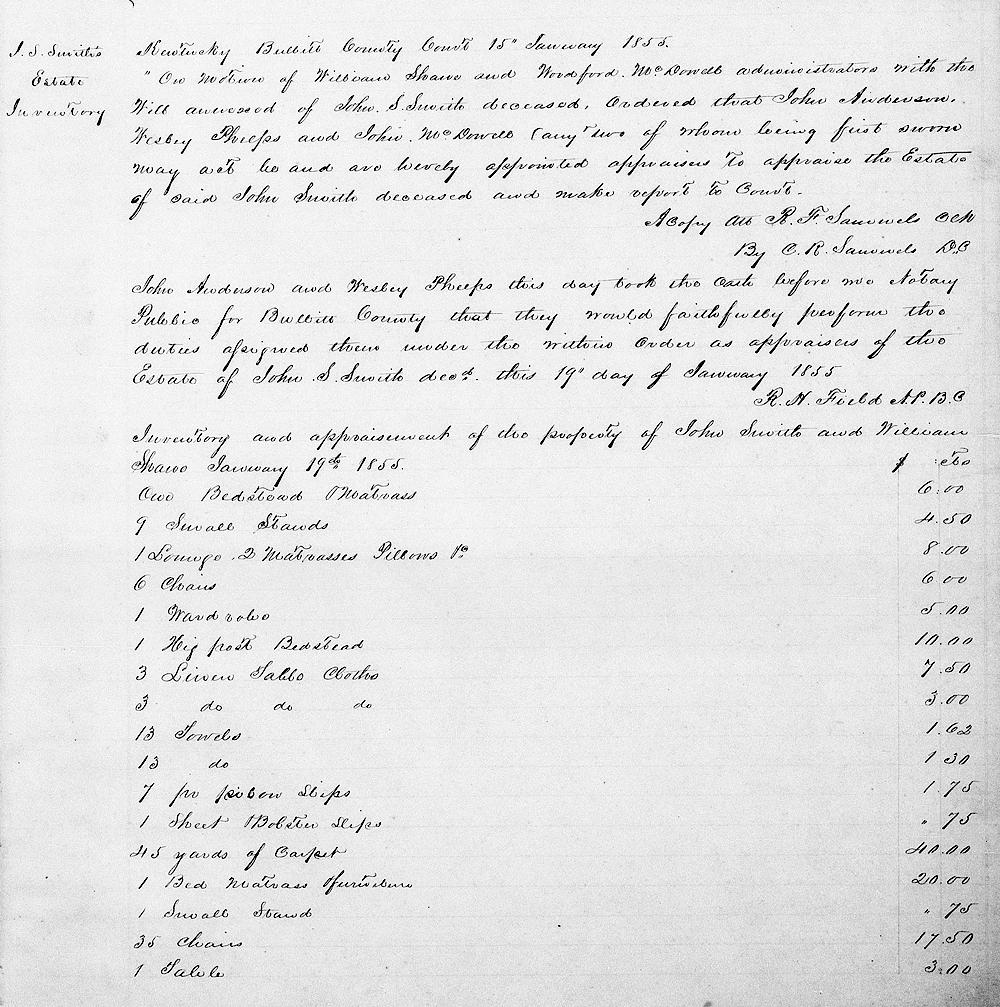 J. S. Smith's
Estate
Inventory
Kentucky Bullitt County Court 15" January 1855.
" On motion of William Shaws and Woodford. McDowell administrators with the
Will annexed of John. S. Smith deceased. Ordered that John Anderson.
Wesley Phelps and John. McDowell (any two of whom being first sworn
may act be and are hereby appointed appraisers to appraise the Estate
of said John Smith deceased and make report to Court.
A Copy Att R. F. Samuels
By C. R. Samuels D.C
John Anderson and Wesley Phelps this day took the Oath before me Notary
Public for Bullitt County that they would faithfully perform the
duties assigned them under the within Order as appraisers of the
Estate of John. S. Smith decd. this 19" day of January 1855
R. H. Field N.P. B.C
Inventory and appraisement of the property of John Smith and William
Shaws January 19th 1855. $ cts
One Bedstead Matrass 6.00
9 Small Stands 4.50
1 Lounge. 2 Matrasses Pillows 8.00
6 Chairs 6 00
1 Wardrobe 5.00
1 Hig post Bedstead 10.00
3 Linen Table Cloths 7.50
3 do do do 3.00
13 Towels 1.62
13 do 1 30
7 pr pilow Slips 1.75
1 Sheet Bolster Slips " 75
45 yards of Carpet 40.00
1 Bed Matrass furniture 20.00
1 Small Stand " 75
35 Chairs 17.50
1 Table 3.00